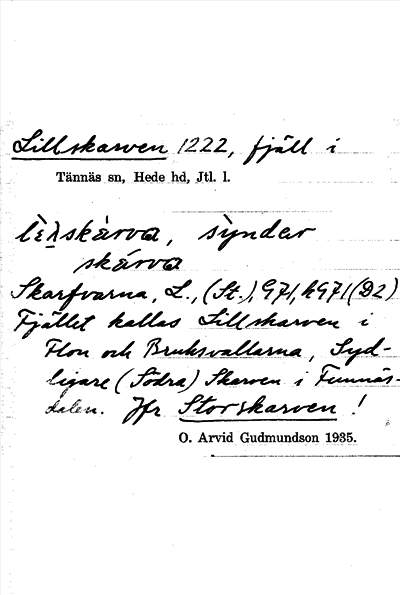 Lillskarven 1222, fjäll i
Tännäs sn, Hede hd, Jtl. l.
skàrva, sỳndar
skárva
Skarfvarna, L., (St.), G71, h971 (D2)
Fjället kallas Lillskarven i
Flon och Bruksvallarna, Syd-
ligare (Södra) Skarven i Funnäs-
dalen. Jfr Storskarven!
O. Arvid Gudmundson 1935.